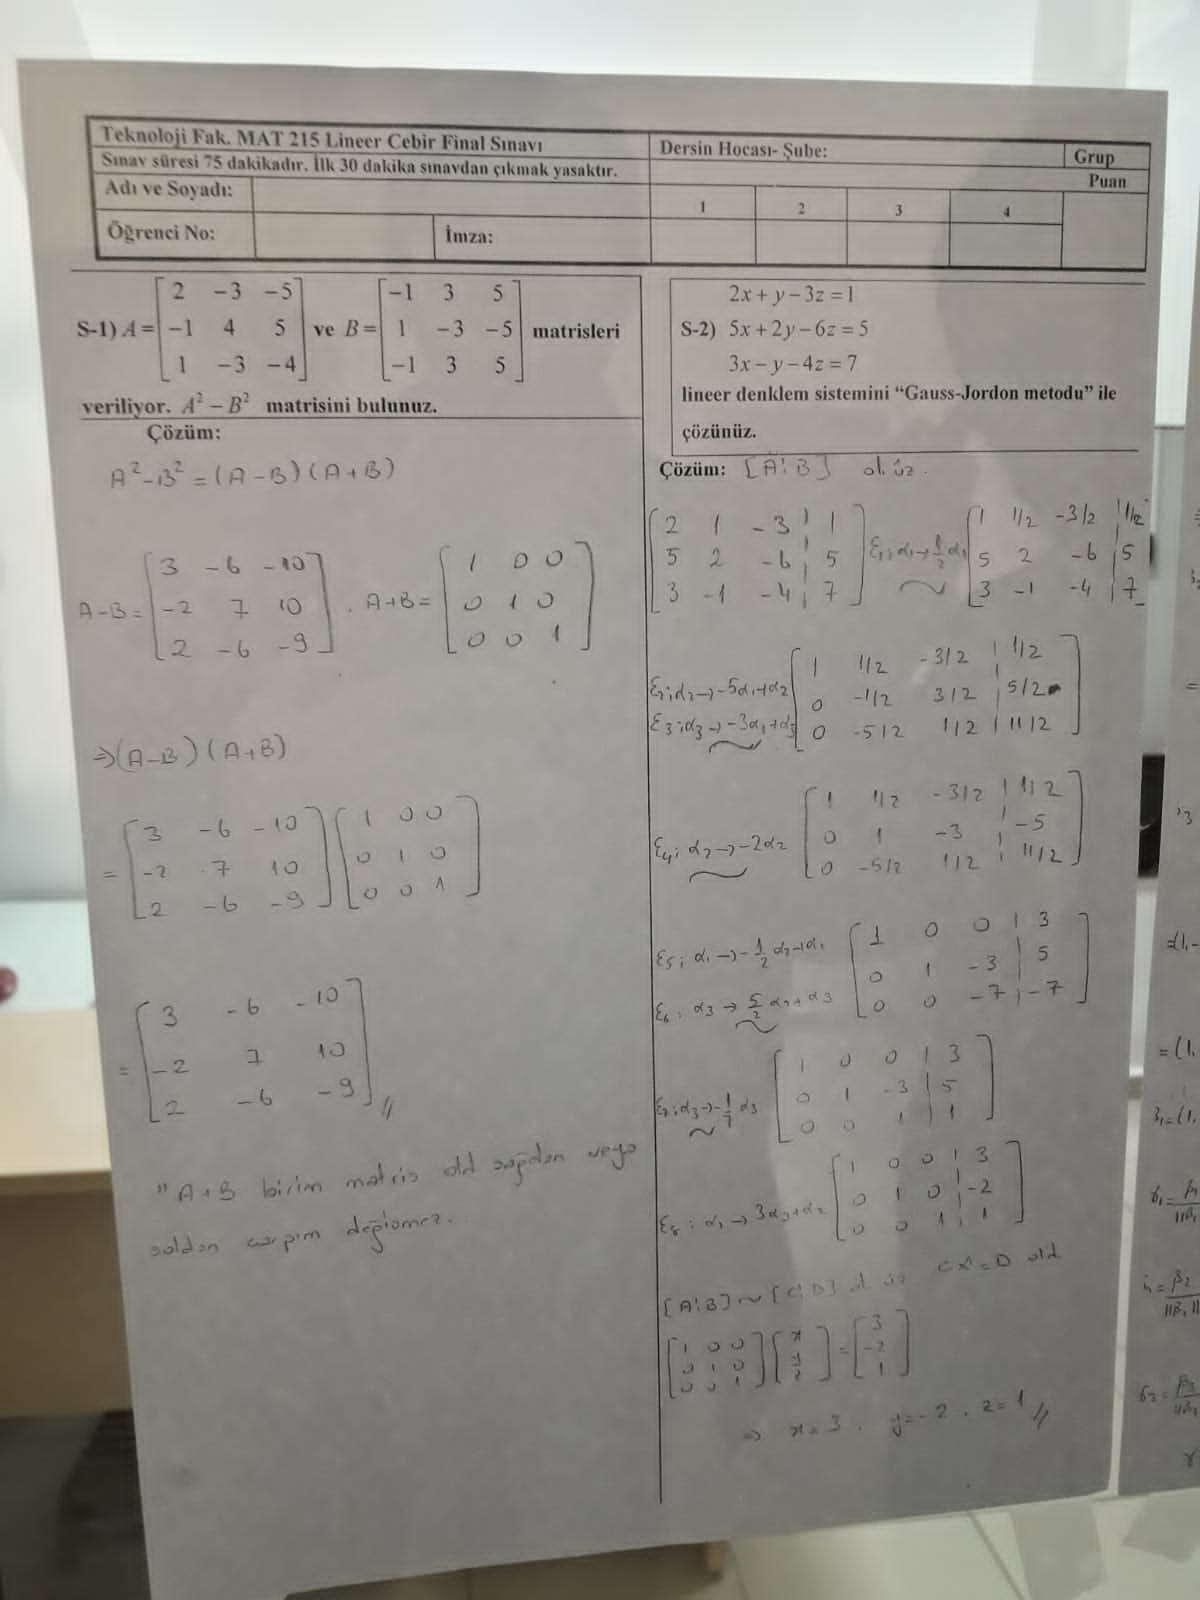 Teknoloji Fak. MAT 215 Lineer Cebir Final Sınavı
Sınav süresi 75 dakikadır. İlk 30 dakika sınavdan çıkmak yasaktır.
Dersin Hocası- Şube:
Grup
Puan
Adı ve Soyadı:
1 2 3 4
Öğrenci No:
İmza:
S-1) A = [2 -3 -5; -1 4 5; 1 -3 -4] ve B = [-1 3 5; 1 -3 -5; -1 3 5] matrisleri
veriliyor. A² – B² matrisini bulunuz.
Çözüm:
A² - B² = (A-B)(A+B)
A-B = [3 -6 -10; -2 7 10; 2 -6 -9] . A+B = [1 0 0; 0 1 0; 0 0 1]
⇒ (A-B)(A+B)
= [3 -6 -10; -2 7 10; 2 -6 -9] [1 0 0; 0 1 0; 0 0 1]
= [3 -6 -10; -2 7 10; 2 -6 -9] //
" A+B birim matris old sağdan veya
soldan çarpım değişmez.
2x + y – 3z = 1
S-2) 5x + 2y – 6z = 5
3x – y – 4z = 7
lineer denklem sistemini “Gauss-Jordon metodu” ile
çözünüz.
Çözüm: [A¦B]
[2 1 -3 ¦ 1; 5 2 -6 ¦ 5; 3 -1 -4 ¦ 7] ε₁; α₁→½α₁ ~ [1 1/2 -3/2 ¦ 1/2; 5 2 -6 ¦ 5; 3 -1 -4 ¦ 7]
ε₂; α₂→-5α₁+α₂
ε₃; α₃→-3α₁+α₃ ~ [1 1/2 -3/2 ¦ 1/2; 0 -1/2 3/2 ¦ 5/2; 0 -5/2 1/2 ¦ 11/2]
ε₄; α₂→-2α₂ ~ [1 1/2 -3/2 ¦ 1/2; 0 1 -3 ¦ -5; 0 -5/2 1/2 ¦ 11/2]
ε₅; α₁→-½α₂+α₁
ε₆: α₃→5/2 α₂+α₃ ~ [1 0 0 ¦ 3; 0 1 -3 ¦ 5; 0 0 -7 ¦ -7]
ε₇; α₃→-1/7 α₃ ~ [1 0 0 ¦ 3; 0 1 -3 ¦ 5; 0 0 1 ¦ 1]
ε₈: α₁→3α₃+α₂ [1 0 0 ¦ 3; 0 1 0 ¦ -2; 0 0 1 ¦ 1]
[A¦B] ~ [C¦D] CX=D old
[1 0 0; 0 1 0; 0 0 1] [x; y; z] = [3; -2; 1]
⇒ x=3 . y=-2 . z=1 //